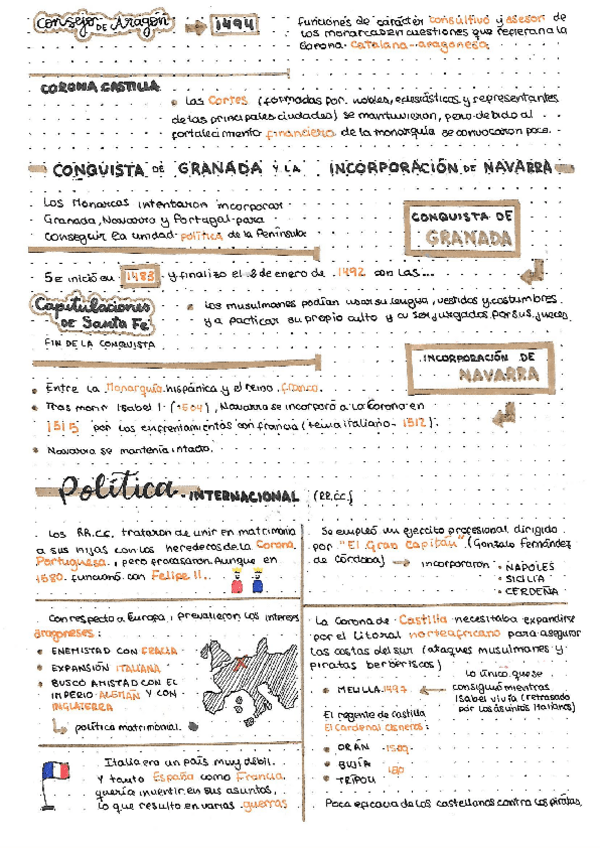 Consejo DE Aragón → 1494
funciones de carácter consúltivo y asesor de
los monarcas en cuestiones que refieran a la
Corona Catalana-aragonesa.
CORONA CASTILLA
Las Cortes (formadas por nobles, eclesiásticos y representantes
de las principales ciudades) se mantuvieron, pero debido al
fortalecimiento financiero de la monarquía se convocaron poco.
CONQUISTA DE GRANADA Y LA INCORPORACIÓN DE NAVARRA
Los Monarcas intentaron incorporar
Granada, Navarra y Portugal para
conseguir la unidad política de la Península
CONQUISTA DE
GRANADA
Se inició en 1483 y finalizo el 2 de enero de 1492 con las...
Capitulaciones
DE Santa Fe
Los musulmanes podían usar su lengua, vestidos y costumbres
y a pacticar su propio culto y a ser juzgados por sus jueces
FIN DE LA CONQUISTA
INCORPORACIÓN DE
NAVARRA
Entre la Monarquía hispánica y el reino franco.
Tras morir Isabel I (1504), Navarra se incorporó a la Corona en
1515 por los enfrentamientos con francia (tema italiano - 1512).
Navarra se mantenía intacta.
Política INTERNACIONAL (RR.CC)
Los RR.CC. trataron de unir en matrimonio
a sus hijas con los herederos de la Corona
Portuguesa, pero fracasaron. Aunque en
1580 funcionó con Felipe II.
Con respecto a Europa, prevalieron los intereses
aragoneses:
ENEMISTAD CON FRACIA
EXPANSIÓN ITALIANA
BUSCÓ AMISTAD CON EL
IMPERIO ALEMÁN Y CON
INGLATERRA
política matrimonial.
Italia era un país muy débil.
Y tanto España como Francia
quería invertir en sus asuntos,
lo que resultó en varias guerras
Se empleó un ejercito profesional dirigido
por "El Gran Capitán" (Gonzalo Fernández
de Córdoba) → incorporaron
NAPOLES
SICILIA
CERDEÑA
La Corona de Castilla necesitaba expandirse
por el litoral norteafricano para asegurar
las costas del sur (ataques musulmanes y
piratas berberiscos)
MELILLA 1497
lo único que se
consiguió mientras
Isabel vivía (retrasado
por los asuntos italianos)
El regente de Castilla
El Cardenal Cisneros:
ORÁN 1509
BUJÍA
TRÍPOLI
Poca eficacia de los castellanos contra los piratas.